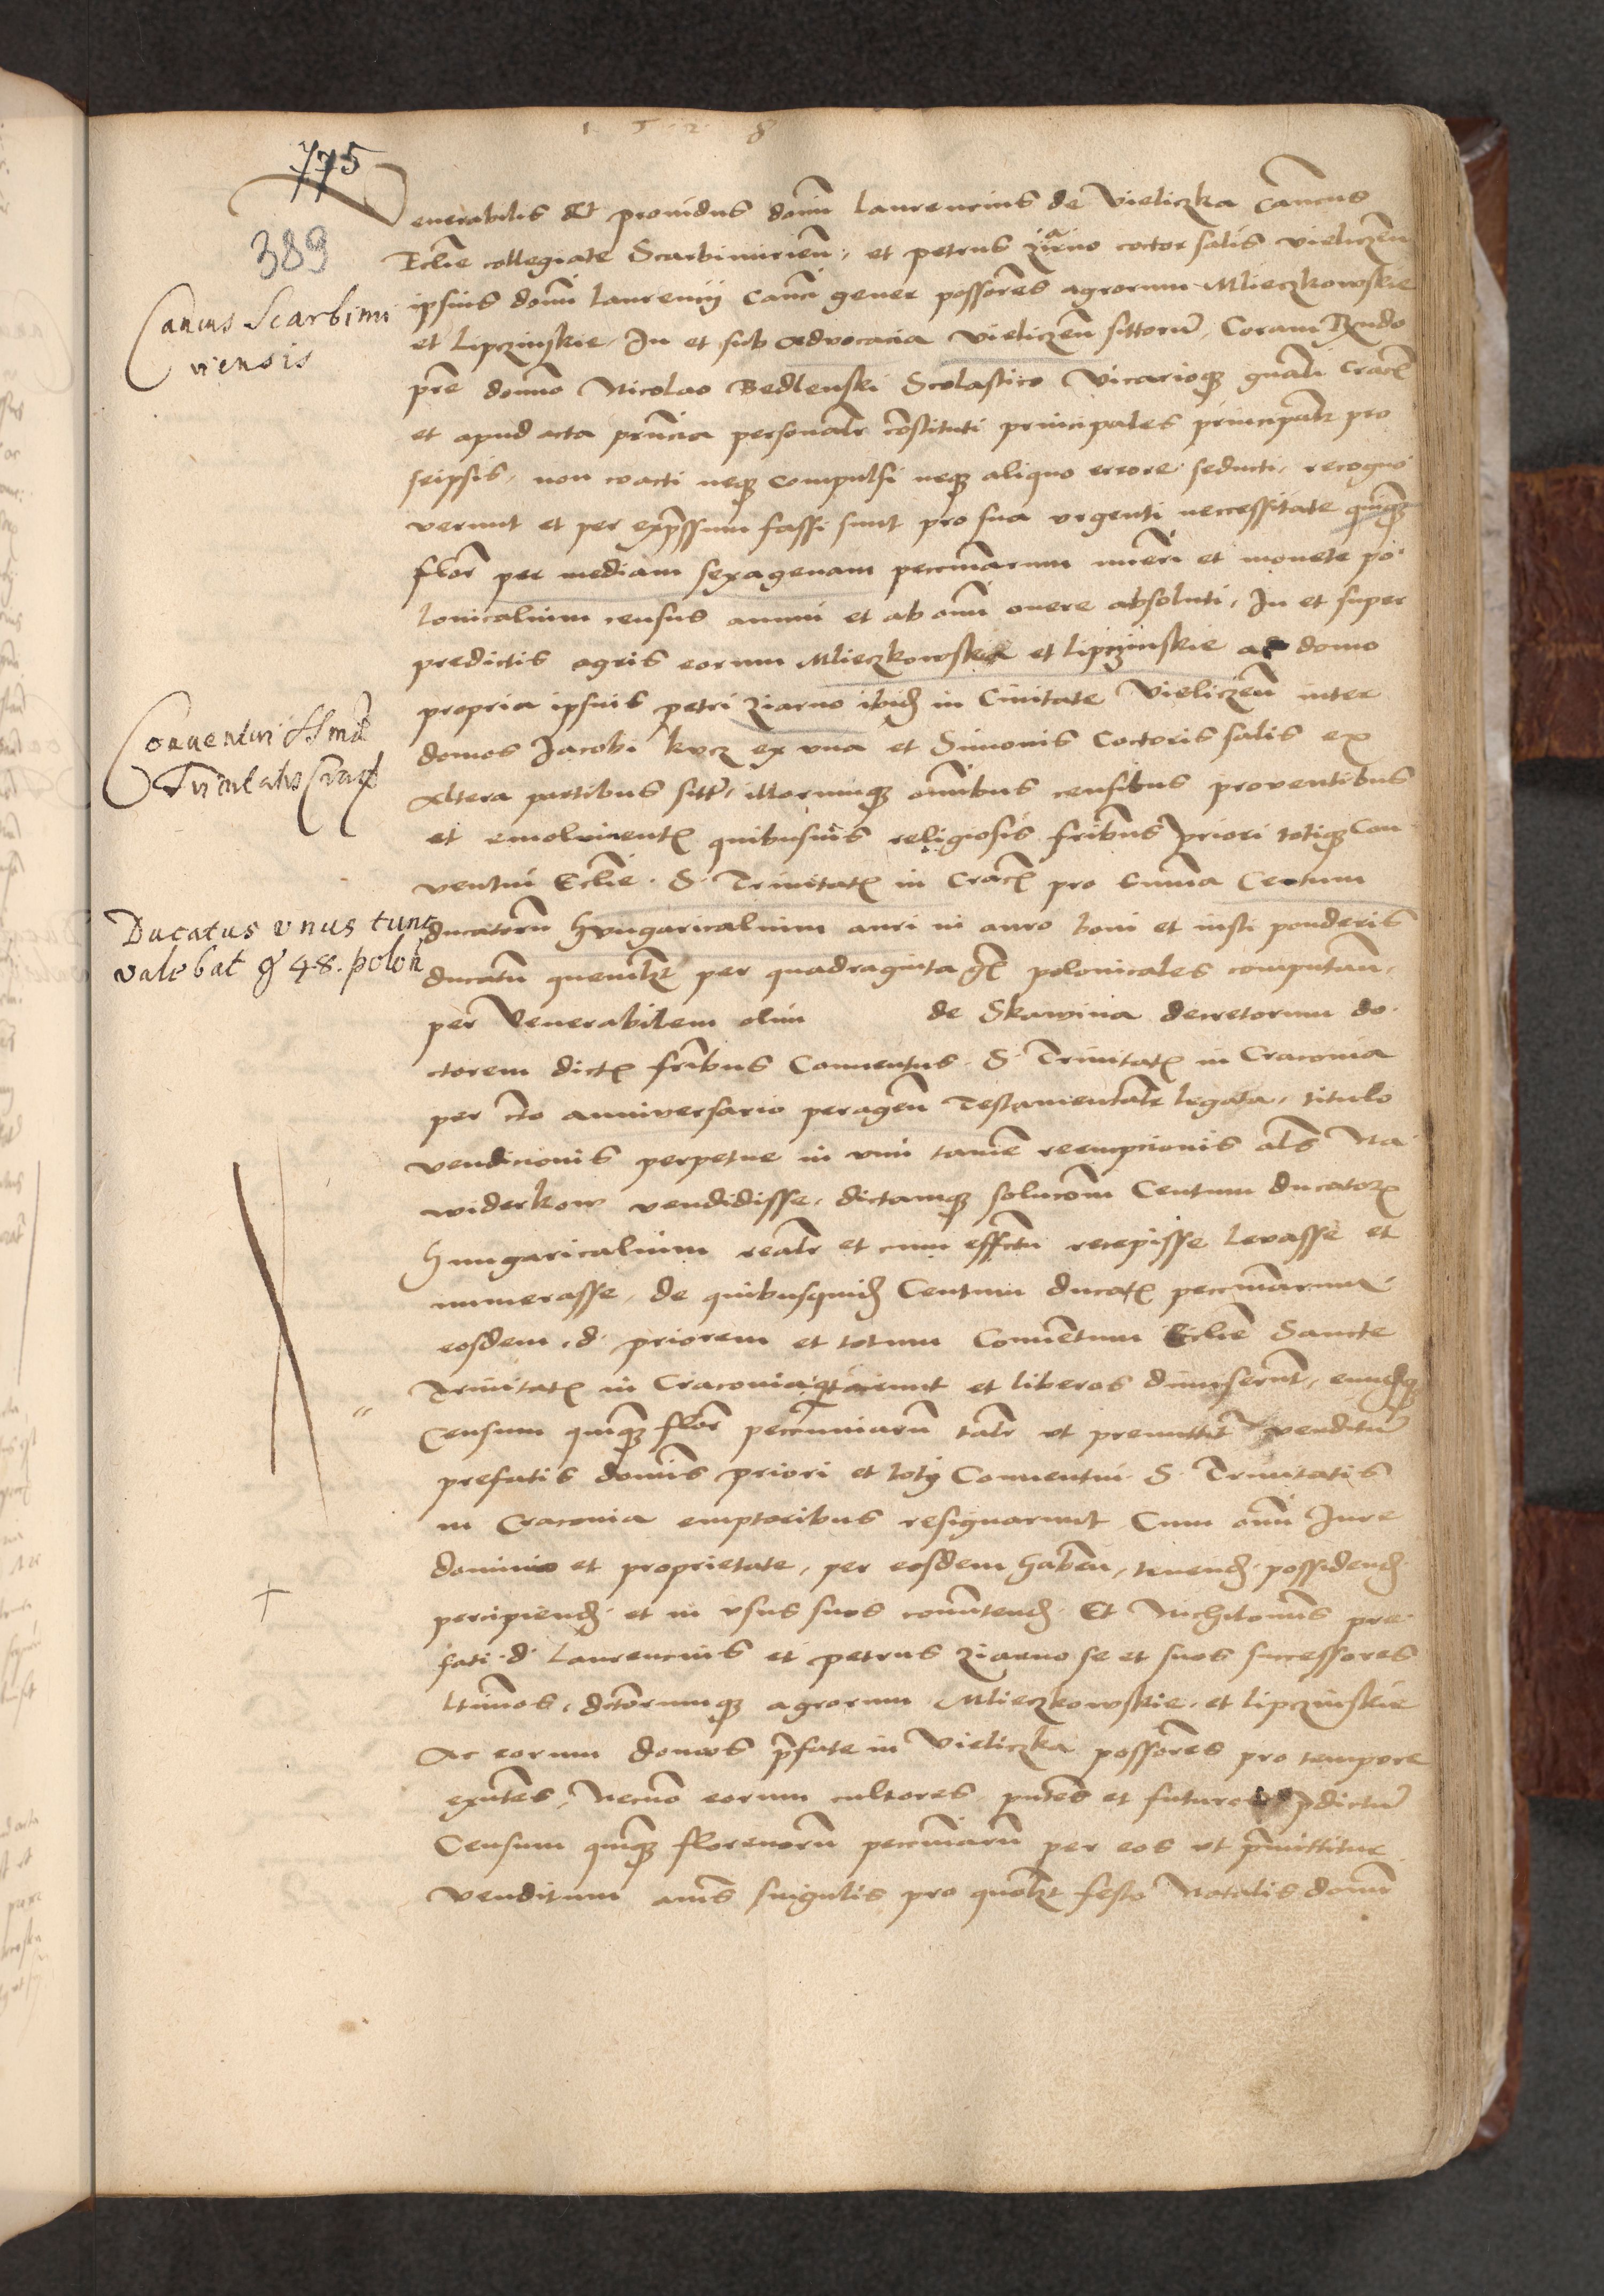 1 5 2 8
775
389
Venerabilis Et providus dominus Laurencius de Vieliczka Canonicus
Ecclie collegiate Scarbimirien, et petrus ziarno coctor salis vieliczen
Cancus Scarbimi
riensis
ipsius domini Laurencij Canci gener possores agrorum Mlieczkowskie
et Lipczinskie In et sub advocacia Vieliczen sittorum, Coram Rndo
pre domno Nicolao Bedlenski Scolastico Vicarioque gnali Crac
et apud acta pruncia personalr constituti principales principalr pro
seipsis, non coacti neque compulsi neque aliquo errore seducti, recogno
verunt et per expressum fassi sunt pro sua urgenti neccessitate quinque
flor per mediam sexagenam pecuniarum nueri et monete po
lonicalium census annui et ab omni onere absoluti, In et super
predictis agris eorum Mlieczkowskie et Lipczinskie ac domo
propria ipsius petri Ziarno ibidem in Civitate Vieliczen inter
Conventui SSmae
Trinitatis Crac
domos Jacobi kucz ex una et Simonis Coctoris salis ex
Altera partibus sitt, illorumque omnibus censibus proventibus
et emolumentis quibusvis religiosis fribus priori totique Con
ventui Ecclie S. Trinitatis in Crac pro summa Centum
Ducatus unus tunc
valebat g 48. polon
ducatorum Hungaricalium auri in auro boni et iusti ponderis
ducatum quemlibet per quadraginta gr polonicales computan,
per Venerabilem olim de Skawina decretorum do
ctorem dictis fribus Conventus S. Trinitatis in Craconia
per anniversario peragen Testamentalr legata, titulo
vendicionis perpetue in vim tamen reempcionis als Na
widerkow vendidisse, dictamque solucom Centum ducatorum
Hungaricalium realr et cum effectu recepisse levasse et
numerasse, de quibusquidem Centum ducatis pecuniarum
eosdem d. priorem et totum Conventum Ecclie Sancte
Trinitatis in Craconia quitarunt et liberos dimiserunt, eundemque
Censum quinque flor pecuniarum talr ut premittitur venditum
prefatis dominis priori et toti Conventui S. Trinitatis
in Craconia emptoribus resignarunt Cum omni Iure
dominio et proprietate, per eosdem haben, tenend possidend
percipiend et in usus suos convertend Et Nichilominus pre
fati d. Laurencius et petrus Ziarno se et suos successores
ltimos, dictorumque agrorum Mlieczkowskie et Lipczinskie
Ac eorum domos prefate in Vieliczka possores pro tempore
exntes, Necnon eorum cultores pntes et futuros predictum
Censum quinque florenorum pecuniarum per eos ut premittitur
venditum annis singulis pro quolibet festo Natalis domini